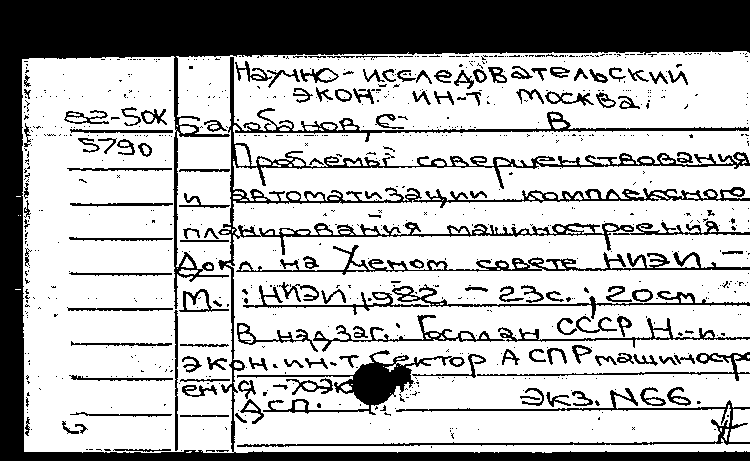 Научно-исследовательский
экон. ин-т. Москва.
82-50К Балобанов, С В
5790 Проблемы совершенствования
и автоматизации комплексного
планирования машиностроения:
Докл. на Ученом совете НИЭИ. –
М.: НИЭИ, 1982. – 23с.; 20см.
В надзаг.: Госплан СССР, Н.-и.
экон. ин-т. Сектор АСПР машиностро
ения. –
Дсп. Экз. N66.